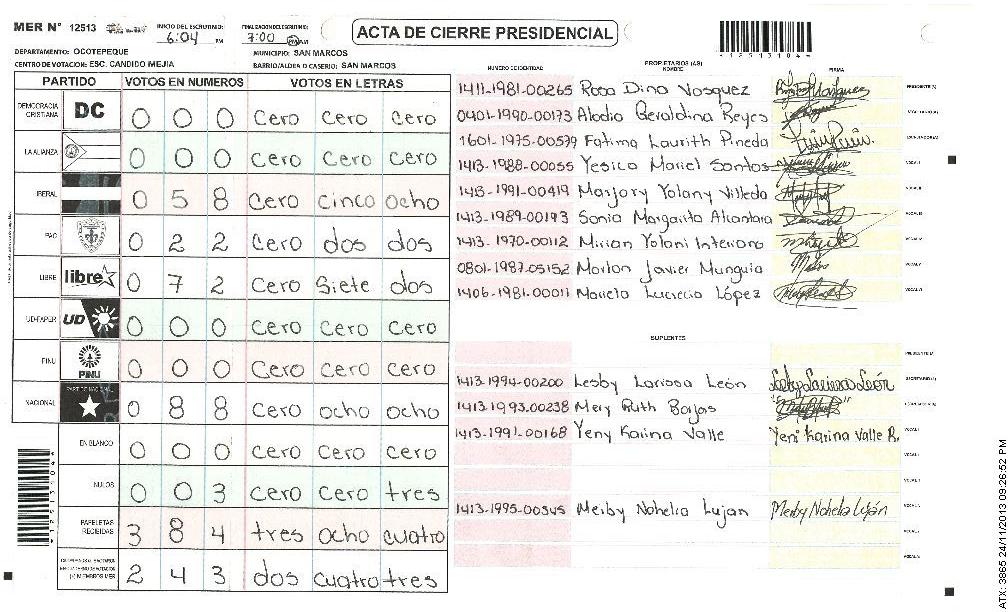 MER N° 12513
INICIO DEL ESCRUTINIO: 6:04 PM
FINALIZACION DEL ESCRUTINIO: 7:00 PM
ACTA DE CIERRE PRESIDENCIAL
*12513104*
DEPARTAMENTO: OCOTEPEQUE
MUNICIPIO: SAN MARCOS
CENTRO DE VOTACION: ESC. CANDIDO MEJIA
BARRIO/ALDEA O CASERIO: SAN MARCOS
PARTIDO VOTOS EN NUMEROS VOTOS EN LETRAS
DEMOCRACIA CRISTIANA DC 0 0 0 Cero Cero Cero
LA ALIANZA 0 0 0 Cero Cero Cero
IBERAL 0 5 8 Cero cinco ocho
PAC 0 2 2 Cero dos dos
LIBRE libre 0 7 2 Cero Siete dos
UD-FAPER UD 0 0 0 Cero Cero Cero
PINU PINU 0 0 0 Cero Cero Cero
NACIONAL PARTIDO NACIONAL 0 8 8 Cero ocho ocho
EN BLANCO 0 0 0 Cero Cero Cero
NULOS 0 0 3 Cero Cero tres
PAPELETAS RECIBIDAS 3 8 4 tres ocho cuatro
(+) MIEMBROS MER 2 4 3 dos cuatro tres
PROPIETARIOS (AS)
NUMERO DE IDENTIDAD NOMBRE FIRMA
1411-1981-00265 Rosa Dina Vasquez PRESIDENTE (A)
0401-1990-00173 Alodia Geraldina Reyes
1601-1975-00579 Fatima Laurith Pineda
1413-1988-00055 Yesica Mariel Santos VOCAL I
1413-1991-00419 Marjory Yolany Villeda VOCAL II
1413-1989-00193 Sonia Margarita Alcantara VOCAL III
1413-1970-00112 Mirian Yolani Interiano VOCAL IV
0801-1987-05152 Marlon Javier Munguia VOCAL V
1406-1981-00011 Marieta Lucrecia López VOCAL VI
SUPLENTES
PRESIDENTE (A)
1413-1994-00200 Lesby Larissa León Lesby Larissa León SECRETARIO (A)
1413-1993-00238 Mery Ruth Borjas
1413-1991-00168 Yeny Karina Valle Yeni Karina Valle R. VOCAL I
1413-1995-00345 Merby Nohelia Lujan Merby Nohelia Luján
*12513104*
ATX: 3865 24/11/2013 09:26:52 PM